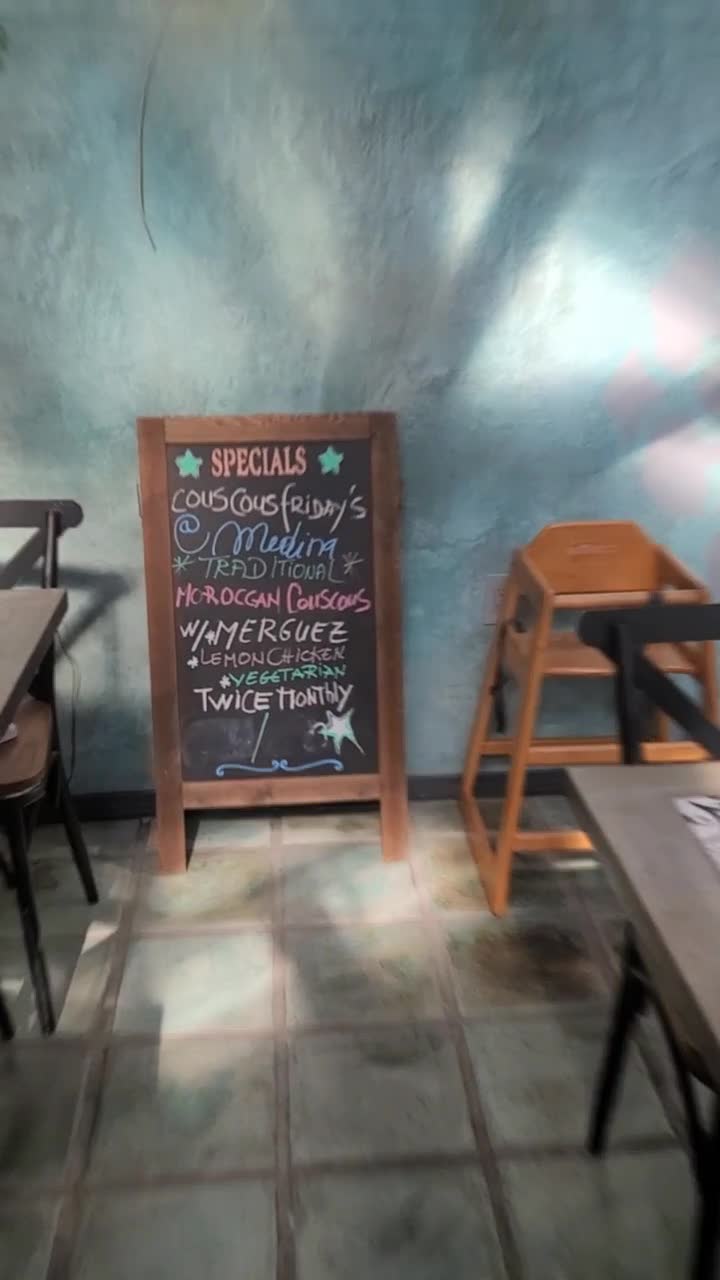 SPECIALS
COUSCOUS FRIDAY'S
@ Medina
*TRADITIONAL*
MOROCCAN COUSCOUS
W/*MERGUEZ
*LEMON CHICKEN
*VEGETARIAN
TWICE MONTHLY
/